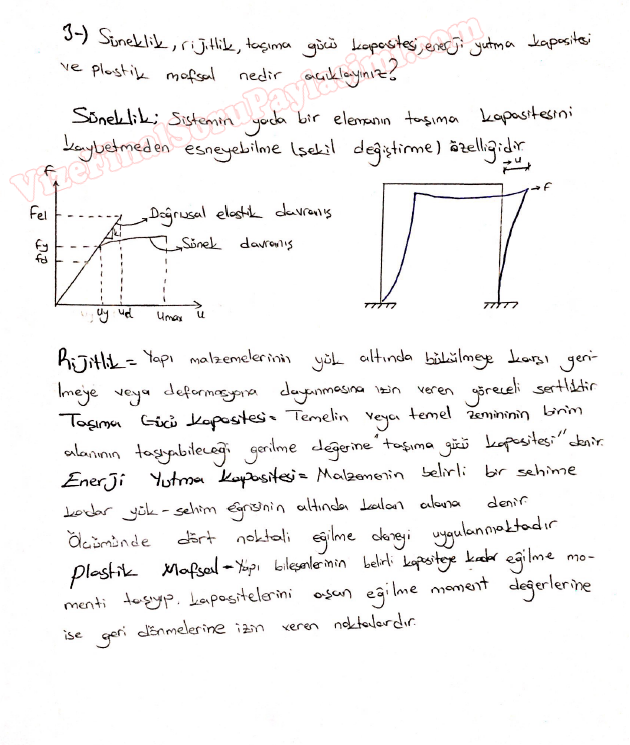 3-) Süneklik, rijitlik, taşıma gücü kapasitesi, enerji yutma kapasitesi
ve plastik mafsal nedir açıklayınız?
VizeFinalSoruPaylasimi.com
Süneklik: Sistemin yada bir elemanın taşıma kapasitesini
kaybetmeden esneyebilme (şekil değiştirme) özelliğidir
F
u
F
Fel
Doğrusal elastik davranış
fy
Sünek davranış
fd
uy uel umax u
Rijitlik = Yapı malzemelerinin yük altında bükülmeye karşı geri-
lmeye veya deformasyona dayanmasına izin veren göreceli sertliktir
Taşıma Gücü Kapasitesi = Temelin veya temel zemininin birim
alanının taşıyabileceği gerilme değerine "taşıma gücü kapasitesi" denir.
Enerji Yutma Kapasitesi = Malzemenin belirli bir sehime
kadar yük-sehim eğrisinin altında kalan alana denir.
Ölçümünde dört noktalı eğilme deneyi uygulanmaktadır
Plastik Mafsal = Yapı bileşenlerinin belirli kapasiteye kadar eğilme mo-
menti taşıyıp, kapasitelerini aşan eğilme moment değerlerine
ise geri dönmelerine izin veren noktalardır.